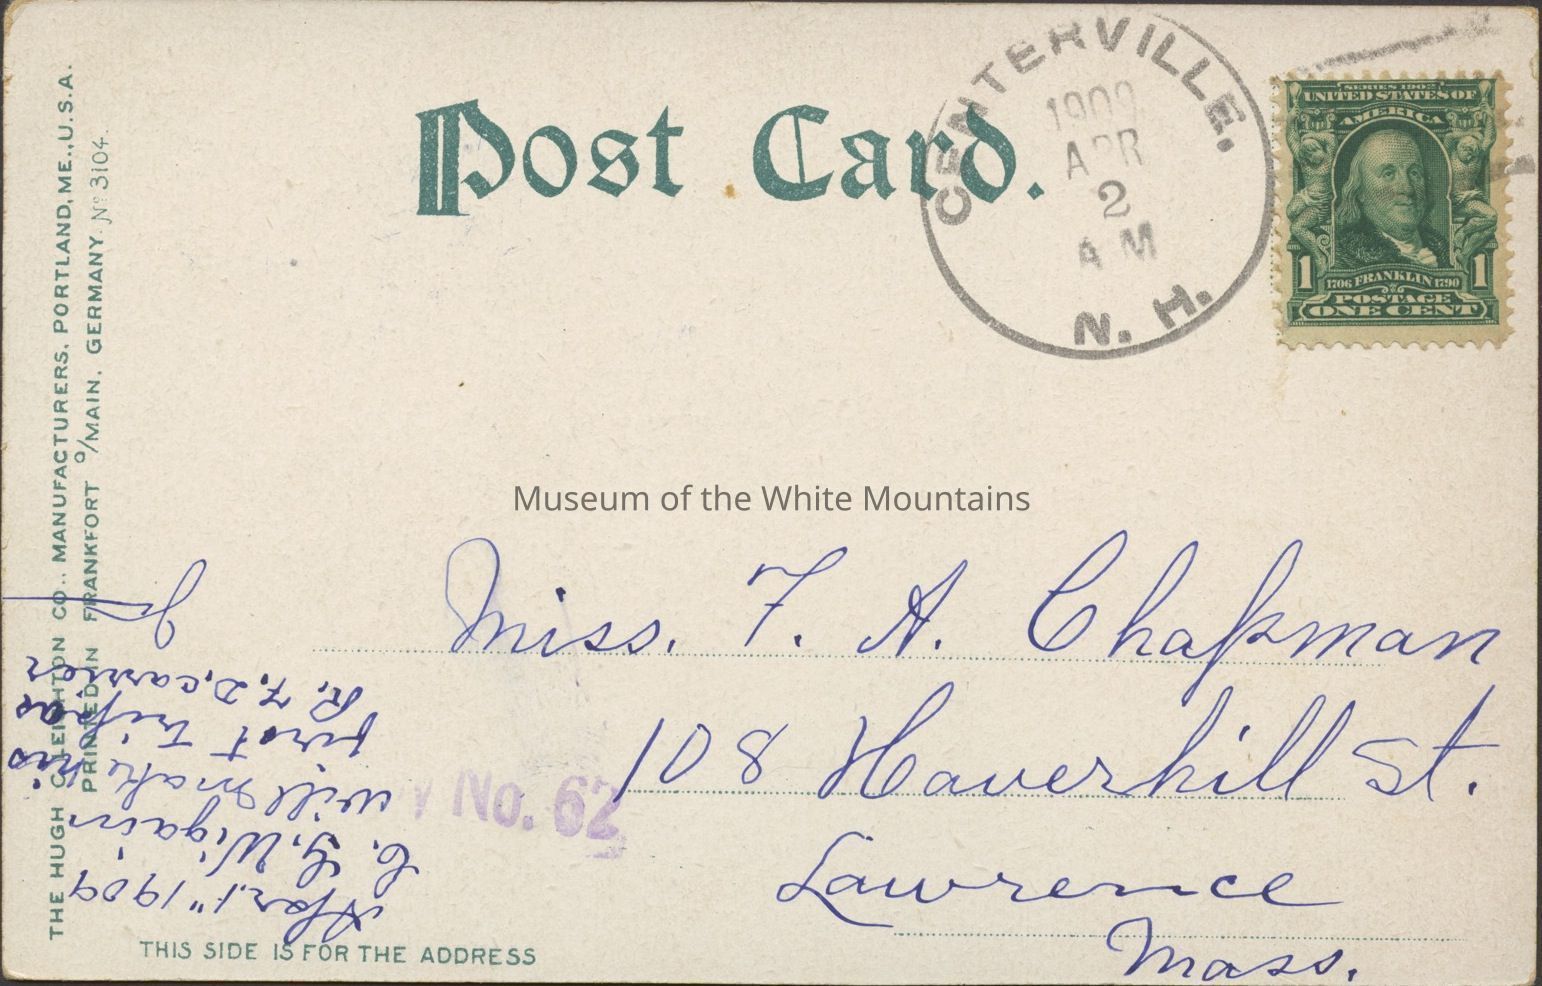 Post Card.
CENTERVILLE.
1909
APR
2
AM
N. H.
SERIES 1902
UNITED STATES OF
AMERICA
1706 FRANKLIN 1790
1 1
POSTAGE
ONE CENT
THE HUGH C. LEIGHTON CO., MANUFACTURERS, PORTLAND, ME., U.S.A.
PRINTED IN FRANKFORT O/MAIN, GERMANY. No 3104.
Museum of the White Mountains
Miss. F. A. Chapman
108 Haverhill St.
Lawrence
Mass.
No. 62
Apr. 1" 1909
C. G. Wigain
will make his
first trip as
R. F. D. carrier
THIS SIDE IS FOR THE ADDRESS